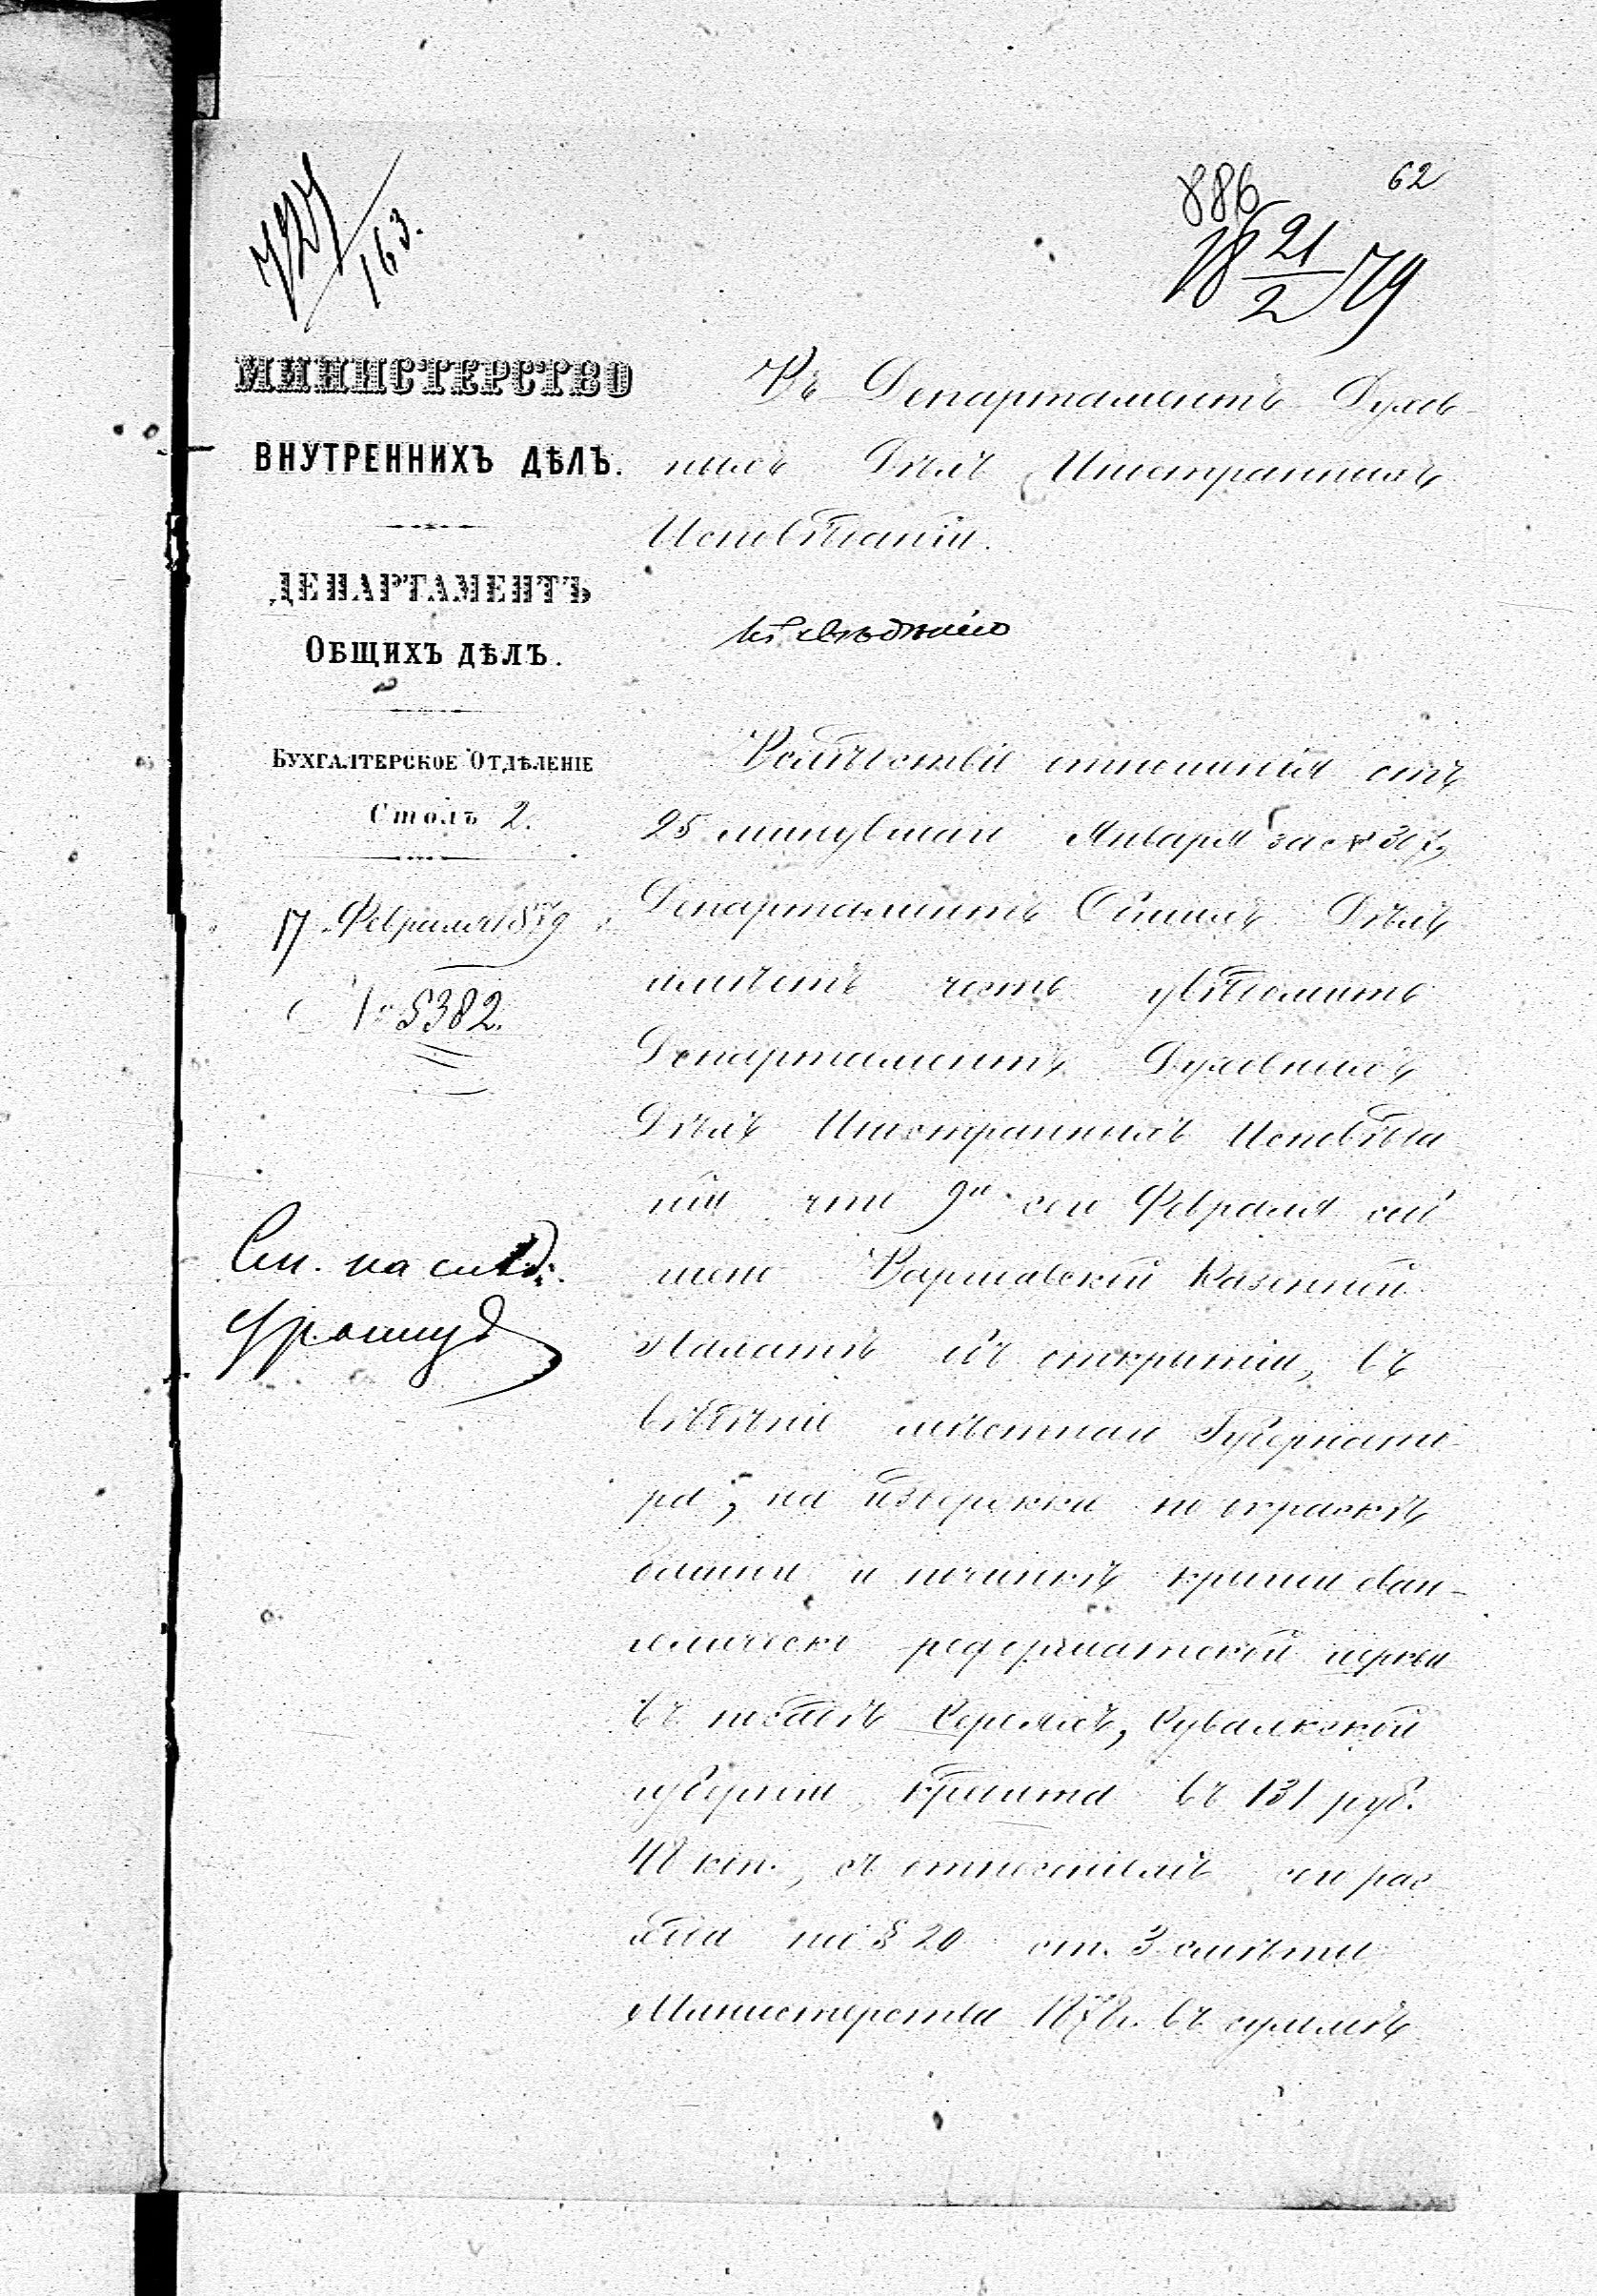 727/163.
886
62
18 21/2 79
МИНИСТЕРСТВО
ВНУТРЕННИХЪ ДѢЛЪ.
ДЕПАРТАМЕНТЪ
ОБЩИХЪ ДѢЛЪ.
БУХГАЛТЕРСКОЕ ОТДѢЛЕНІЕ
Столъ 2.
17 Февраля 1879
№ 5382.
См. на слѣд:
Въ Департаментъ Духов-
ныхъ Дѣлъ Иностранныхъ
Исповѣданій.
къ свѣдѣнію
Вслѣдствіе отношенія отъ
25 минувшаго Января за №
Департаментъ Общихъ Дѣлъ
имѣетъ честь увѣдомить
Департаментъ Духовныхъ
Дѣлъ Иностранныхъ Исповѣда
ній что 9го сего Февраля сооб
щено Варшавской Казенной
Палатѣ объ открытіи, въ
вѣдѣніе мѣстнаго Губернато-
ра, на издержки по окраскѣ
башни и починкѣ крыши еван-
гелическо реформатской церкви
въ посадѣ Сереяхъ, Сувалкской
губерніи, кредита въ 131 руб.
48 коп., съ отнесеніемъ сего рас-
хода на § 20 ст. 3 смѣты
Министерства 1878 г. въ суммѣ